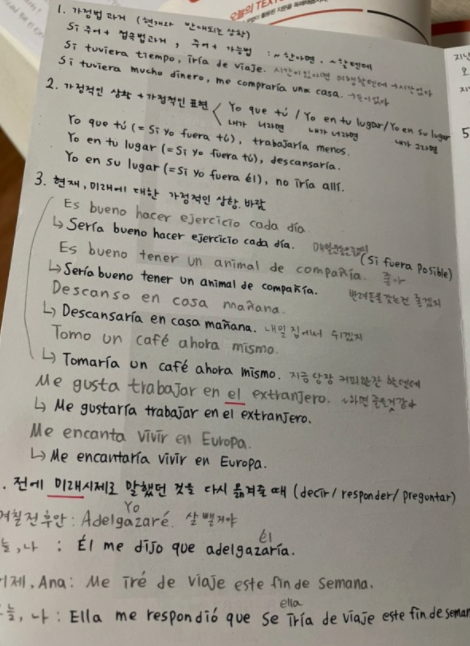 오늘의 TEXT
1. 가정법 과거 (현재와 반대되는 상황)
Si 주어 + 접속법과거, 주어 + 가능법 : ~한다면, ~할텐데
Si tuviera tiempo, iría de viaje. 시간이있다면 여행할텐데 →시간없다
Si tuviera mucho dinero, me compraría una casa. →돈이없다
2. 가정적인 상황 + 가정적인 표현 Yo que tú / Yo en tu lugar / Yo en su lugar
내가 너라면 내가 너라면 내가 그라면
Yo que tú (= Si yo fuera tú), trabajaría menos.
Yo en tu lugar (= Si yo fuera tú), descansaría.
Yo en su lugar (= Si yo fuera él), no iría allí.
3. 현재, 미래에 대한 가정적인 상황. 바람
Es bueno hacer ejercicio cada día
↳ Sería bueno hacer ejercicio cada día. (Si fuera posible)
Es bueno tener un animal de compañía. 좋아
↳ Sería bueno tener un animal de compañía. 좋겠지
Descanso en casa mañana.
↳ Descansaría en casa mañana. 내일 집에서 쉬겠지
Tomo un café ahora mismo.
↳ Tomaría un café ahora mismo. 지금 당장 커피한잔 할텐데
Me gusta trabajar en el extranjero. ~라면 좋을것같다
↳ Me gustaría trabajar en el extranjero.
Me encanta vivir en Europa.
↳ Me encantaría vivir en Europa.
. 전에 미래시제로 말했던 것을 다시 옮겨줄 때 (decir / responder / preguntar)
며칠전후안 : Adelgazaré. 살 뺄거야
Yo
él
, 나 : Él me dijo que adelgazaría.
, Ana : Me iré de viaje este fin de semana.
ella
, 나 : Ella me respondió que se iría de viaje este fin de seman
지난
5